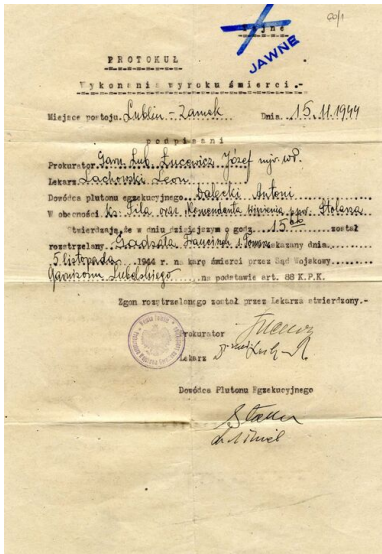 60/1
Tajne
JAWNE
PROTOKUŁ
Wykonania wyroku śmierci.-
Miejsce postoju. Lublin - Zamek Dnia. 15.11.1944
podpisani
Prokurator. Garn. Lub. Łucowicz Józef mjr. W.P.
Lekarz. Lachowski Leon
Dowódca plutonu egzekucyjnego. Antoni
W obecności ks. Piła oraz Komendanta więzienia ppor. Stolarza
stwierdzają, że w dniu dzisiejszym o godz. 15 został
rozstrzelany. Franciszek s. skazany dnia.
5 listopada 1944 r. na karę śmierci przez Sąd Wojskowy
Garnizonu Lubelskiego na podstawie art. 88 K.P.K.
Zgon rozstrzelanego został przez Lekarza stwierdzony.-
Prokurator
Lekarz
Dowódca Plutonu Egzekucyjnego